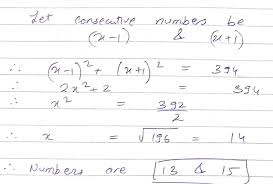 Let consecutive numbers be
(x-1) & (x+1)
∴ (x-1)² + (x+1)² = 394
∴ 2x² + 2 = 394
∴ x² = 392/2
∴ x = √196 = 14
∴ Numbers are [13 & 15]